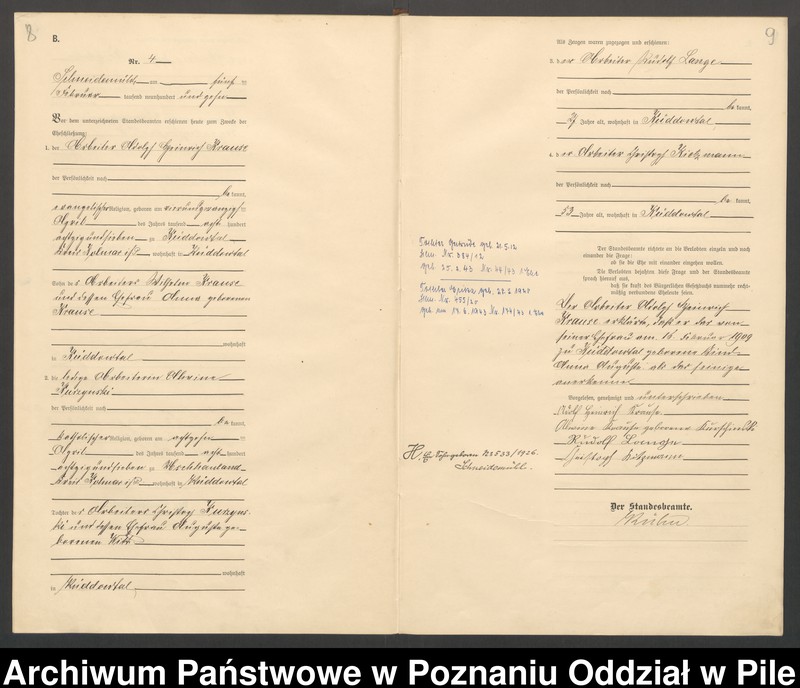 8
B.
Nr. 4
Schneidemühl am fünf ten
Februar tausend neunhundert und zehn
Vor dem unterzeichneten Standesbeamten erschienen heute zum Zwecke der
Eheschließung:
1. der Arbeiter Adolf Heinrich Krause
der Persönlichkeit nach
be kannt,
evangelischer Religion, geboren am vierundzwanzig ten
April des Jahres tausend acht hundert
achtzigundsieben zu Küddowtal
Kreis Kolmar i/P. wohnhaft in Küddowtal
Sohn des Arbeiters Wilhelm Krause
und dessen Ehefrau Anna geborenen
Krause
wohnhaft
in Küddowtal
2. die ledige Arbeiterin Alwine
der Persönlichkeit nach
be kannt,
katholischer Religion, geboren am achtzehn ten
April des Jahres tausend acht hundert
achtzigundsieben zu
Kreis Kolmar i/P. wohnhaft in Küddowtal
Tochter des Arbeiters Christoph
und dessen Ehefrau Auguste ge-
borenen Witt
wohnhaft
in Küddowtal
Tochter geb. 21.5.12
geb. 22.6.1920
H. 1926
Schneidemühl.
9
Als Zeugen waren zugezogen und erschienen:
3. der Arbeiter Rudolf Lange
der Persönlichkeit nach
be kannt,
27 Jahre alt, wohnhaft in Küddowtal
4. der Arbeiter Christoph
der Persönlichkeit nach
be kannt,
53 Jahre alt, wohnhaft in Küddowtal
Der Standesbeamte richtete an die Verlobten einzeln und nach
einander die Frage:
ob sie die Ehe mit einander eingehen wollen.
Die Verlobten bejahten diese Frage und der Standesbeamte
sprach hierauf aus,
daß sie kraft des Bürgerlichen Gesetzbuchs nunmehr recht-
mäßig verbundene Eheleute seien.
Der Arbeiter Adolf Heinrich
Krause erklärte, daß er das von
seiner Ehefrau am 16. Februar 1909
zu Küddowtal geborene Kind
Anna Auguste als das seinige
anerkenne.
Vorgelesen, genehmigt und unterschrieben
Adolf Heinrich Krause
Alwine Krause geborene
Rudolf Lange
Der Standesbeamte.
Archiwum Państwowe w Poznaniu Oddział w Pile